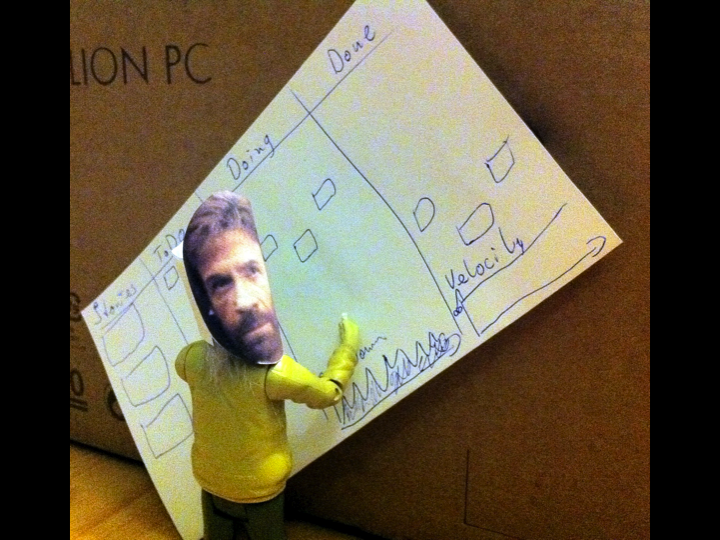 LION PC
Stories
ToDo
Doing
Done
Velocity